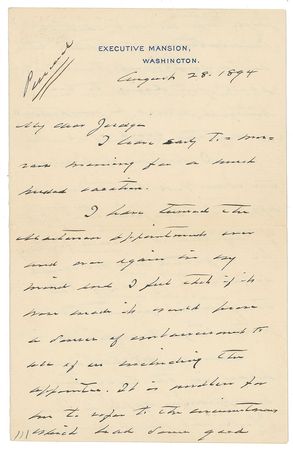 Personal
EXECUTIVE MANSION,
WASHINGTON.
August 28. 1894
My dear Judge
I leave early to-mor-
row morning for a much
needed vacation.
I have turned the
appointment over
and over again in my
mind and I feel that if it
were made it would prove
a source of embarrassment to
all of us including the
appointee. It is needless for
me to refer to the circumstances
which lead some good